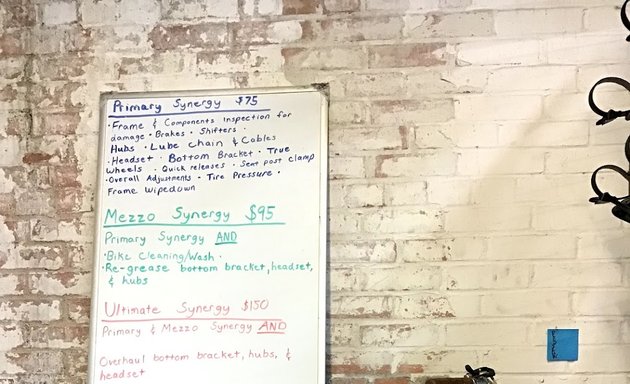 Primary Synergy $75
• Frame & Components Inspection for
damage • Brakes • Shifters •
Hubs • Lube Chain & Cables
• Headset • Bottom Bracket • True
Wheels • Quick releases • Seat post clamp
• Overall Adjustments • Tire Pressure •
Frame Wipedown
Mezzo Synergy $95
Primary Synergy AND
• Bike Cleaning/Wash •
• Re-grease bottom bracket, headset,
& hubs
Ultimate Synergy $150
Primary & Mezzo Synergy AND
Overhaul bottom bracket, hubs, &
headset